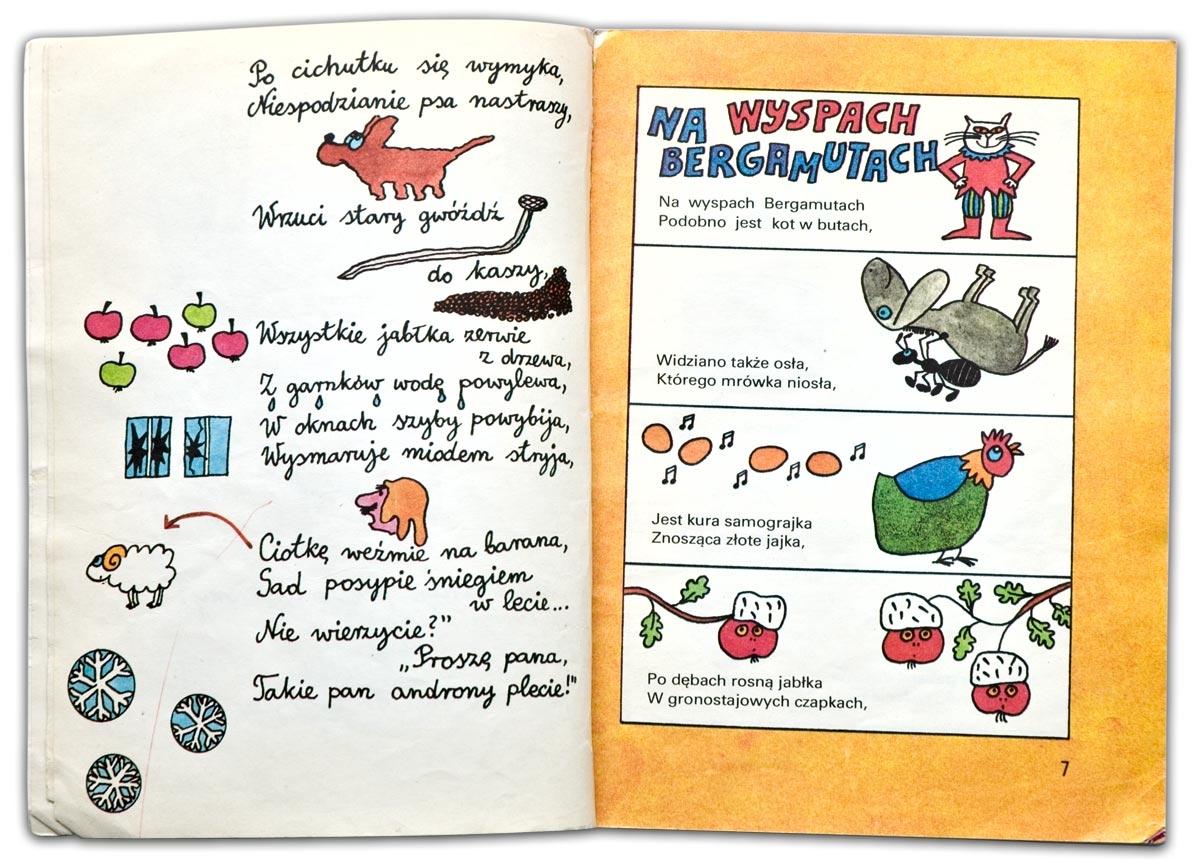 Po cichutku się wymyka,
Niespodzianie psa nastraszy,
Wrzuci stary gwóźdź
do kaszy,
Wszystkie jabłka zerwie
z drzewa,
Z garnków wodę powylewa,
W oknach szyby powybija,
Wysmaruje miodem stryja,
Ciotkę weźmie na barana,
Sad posypie śniegiem
w lecie...
Nie wierzycie?"
„Proszę pana,
Takie pan androny plecie!"
NA WYSPACH
BERGAMUTACH
Na wyspach Bergamutach
Podobno jest kot w butach,
Widziano także osła,
Którego mrówka niosła,
Jest kura samograjka
Znosząca złote jajka,
Po dębach rosną jabłka
W gronostajowych czapkach,
7